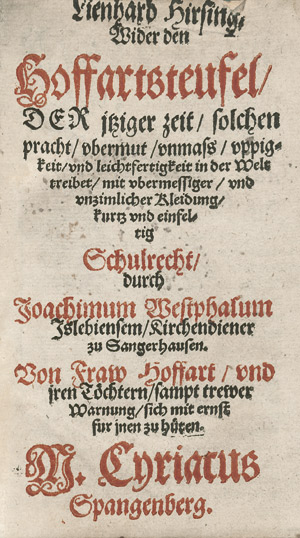 Lienhard Hirsing,
Wider den
Hoffartsteufel /
DER jtziger zeit / solchen
pracht / vbermut / vnmass / vppig-
keit / vnd leichtfertigkeit in der Welt
treibet / mit vbermessiger / vnd
vnzimlicher Kleidung /
kurtz vnd einfel-
tig
Schulrecht /
durch
Joachimum Westphalum
Jslebiensem / Kirchendiener
zu Sangerhausen.
Von Fraw Hoffart / vnd
jren Töchtern / sampt trewer
Warnung / sich mit ernst
fur jnen zu hüten.
M. Cyriacus
Spangenberg.